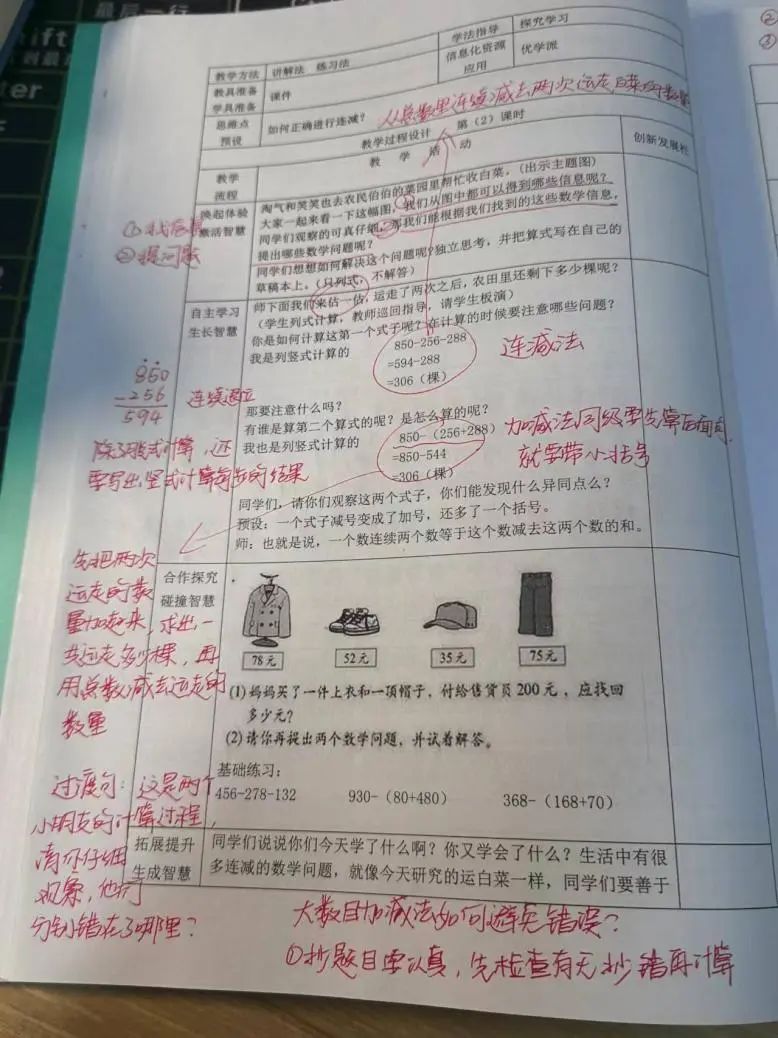 最后一行
ift
er
教学方法 讲解法 练习法 学法指导 探究学习
教具准备 学具准备 课件 信息化资源应用 优学派
思维点预设 如何正确进行连减? 从总数里连续减去两次运走白菜的数量
教学过程设计 第(2)课时
教学流程 教 学 活 动 创新发展栏
唤起体验 激活智慧
淘气和笑笑也去农民伯伯的菜园里帮忙收白菜。(出示主题图)
大家一起来看一下这幅图,我们从图中都可以得到哪些信息呢?
同学们观察的可真仔细,那我们能根据我们找到的这些数学信息,
提出哪些数学问题呢?
同学们想想如何解决这个问题呢?独立思考,并把算式写在自己的
草稿本上。(只列式,不解答)
① 找信息
② 提问题
自主学习 生长智慧
师下面我们来估一估,运走了两次之后,农田里还剩下多少棵呢?
(学生列式计算,教师巡回指导,请学生板演)
你是如何计算这第一个式子呢?在计算的时候要注意哪些问题?
我是列竖式计算的 850-256-288
=594-288
=306(棵)
连减法
850
-256
594
连续退位
那要注意什么吗?
有谁是算第二个算式的呢?是怎么算的呢?
我也是列竖式计算的 850-(256+288)
=850-544
=306(棵)
加减法同级要先算后面的,
就要带小括号
除了脱式计算,还
要写出竖式计算每步的结果
同学们,请你们观察这两个式子,你们能发现什么异同点么?
预设:一个式子减号变成了加号,还多了一个括号。
师:也就是说,一个数连续两个数等于这个数减去这两个数的和。
先把两次
运走的数
量加起来,求出一
共运走多少棵,再
用总数减去运走的
数量
合作探究 碰撞智慧
78元 52元 35元 75元
(1)妈妈买了一件上衣和一项帽子,付给售货员200元,应找回
多少元?
(2)请你再提出两个数学问题,并试着解答。
基础练习:
456-278-132 930-(80+480) 368-(168+70)
过渡句:这是两个
小朋友的计算过程,
请你仔细
观察,他们
分别错在了哪里?
拓展提升 生成智慧
同学们说说你们今天学了什么啊?你又学会了什么?生活中有很
多连减的数学问题,就像今天研究的运白菜一样,同学们要善于
大数目加减法如何避免错误?
①抄题目要认真,先检查有无抄错再计算
②
③